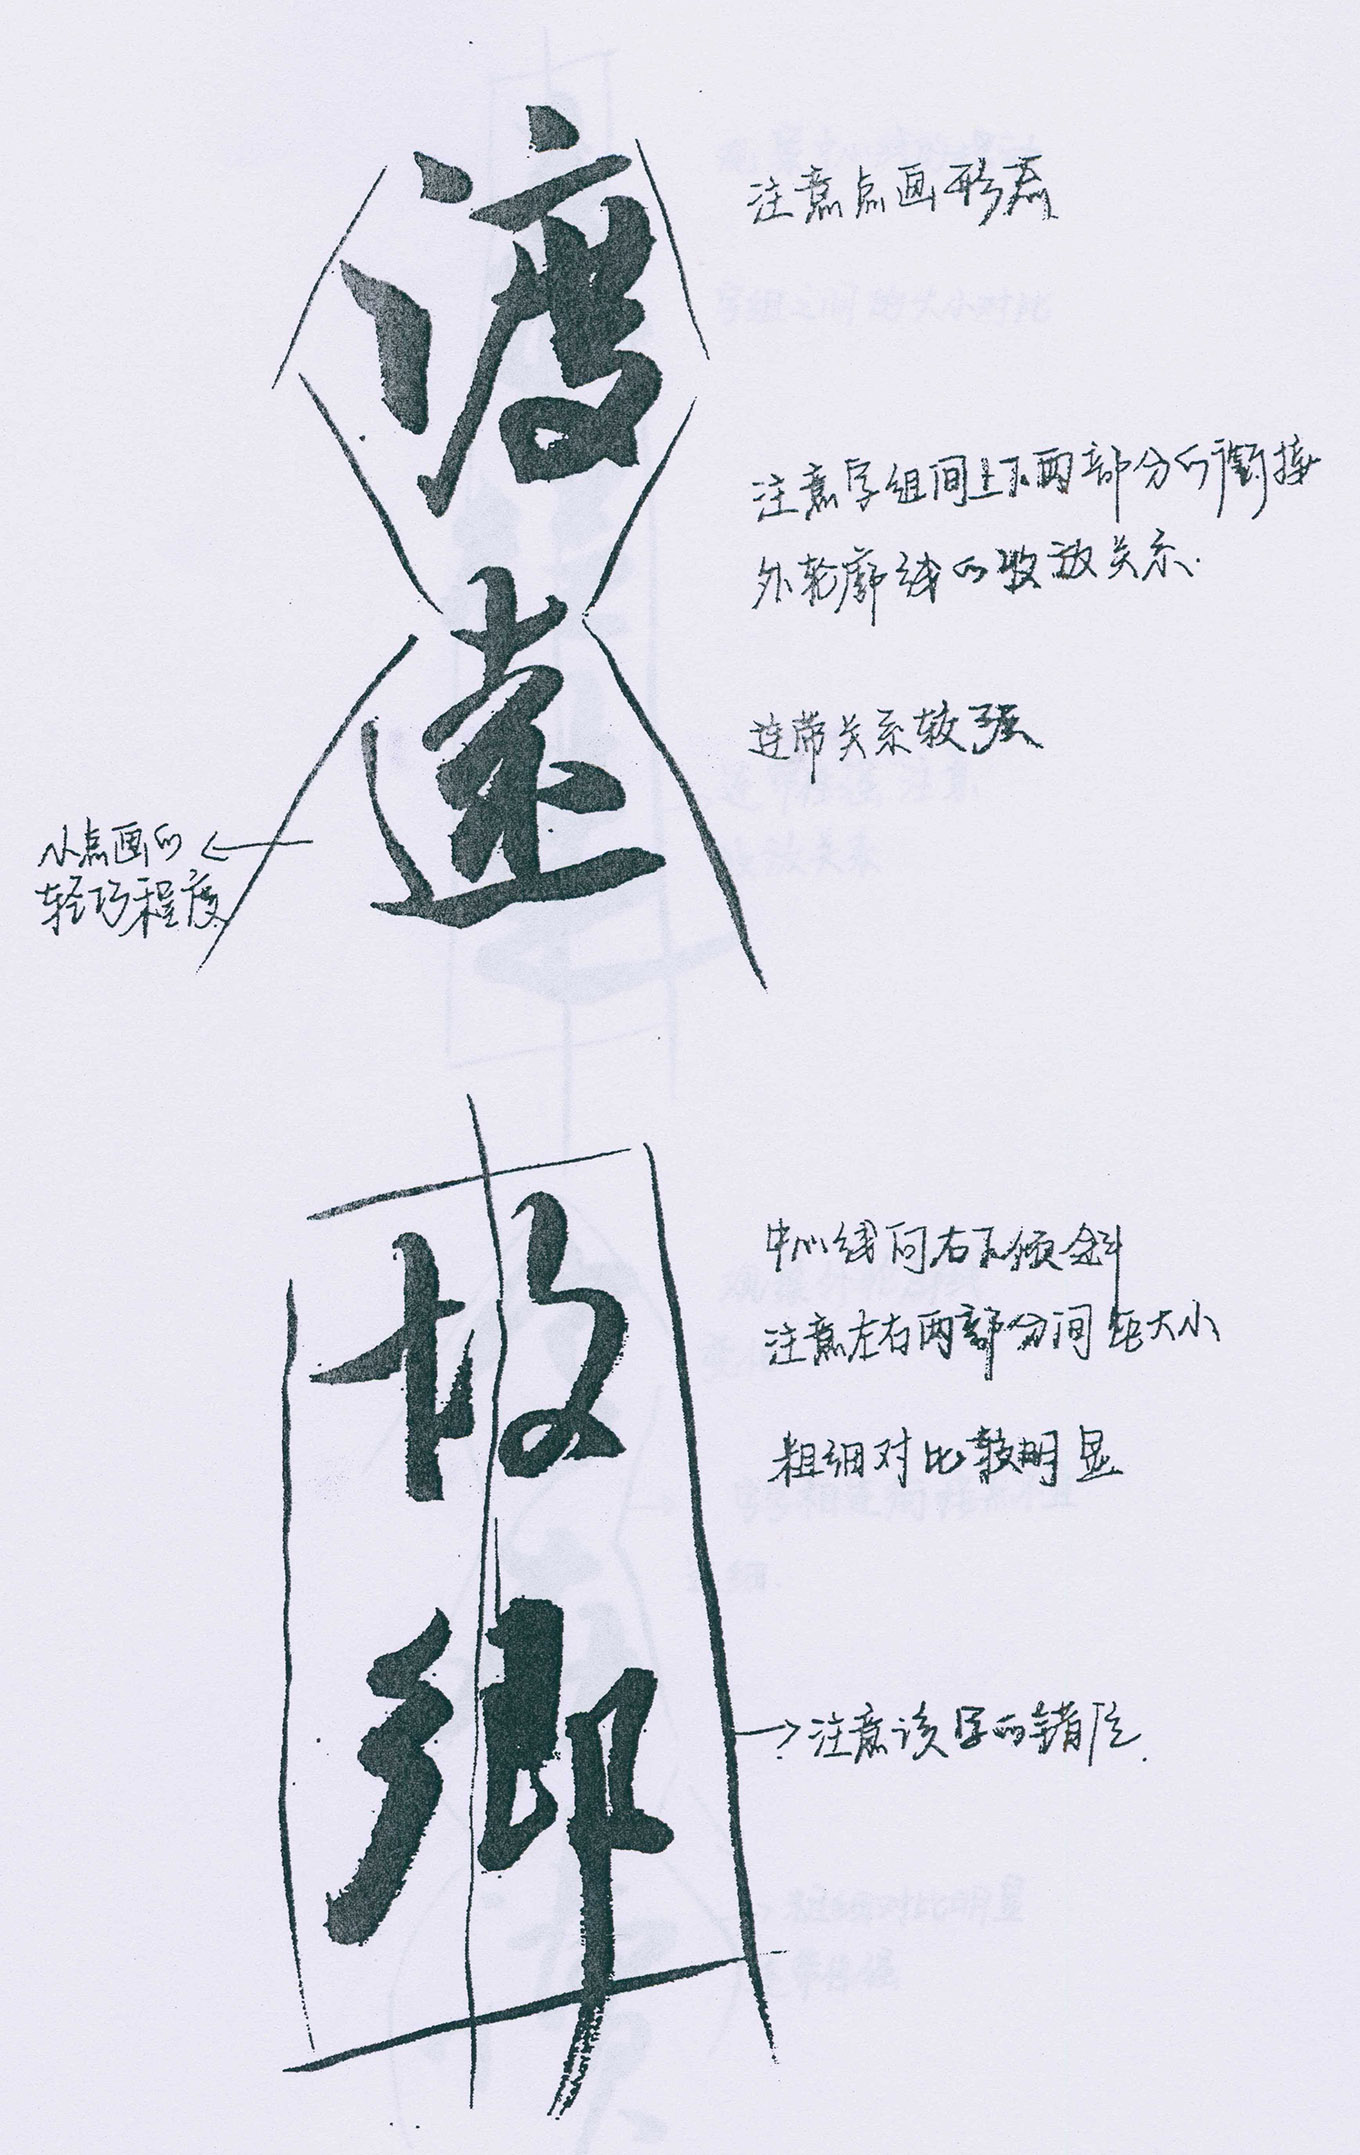 渡
注意点画形态
注意字组间上下两部分的衔接
外轮廓线的收放关系.
远
连带关系较强
小点画的
轻巧程度
故
中心线向右下倾斜
注意左右两部分间距大小
粗细对比较明显
乡
注意该字的错位.